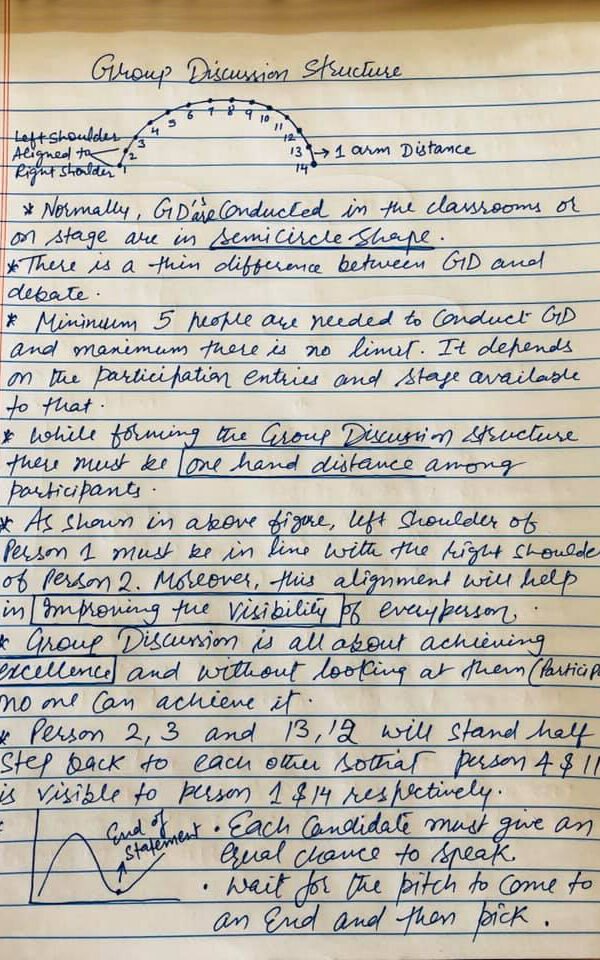 Group Discussion Structure
1 2 3 4 5 6 7 8 9 10 11 12 13 14
Left Shoulder
Aligned to
Right Shoulder
1 arm Distance
* Normally, GD's are Conducted in the classrooms or
on stage are in semicircle shape.
* There is a thin difference between GD and
debate.
* Minimum 5 people are needed to Conduct GD
and maximum there is no limit. It depends
on the participation entries and stage available
to that.
* While forming the Group Discussion structure
there must be one hand distance among
participants.
* As shown in above figure, left shoulder of
Person 1 must be in line with the right shoulder
of Person 2. Moreover, this alignment will help
in improving the visibility of every person.
* Group Discussion is all about achieving
excellence and without looking at them (Particip
no one can achieve it.
* Person 2, 3 and 13, 12 will stand half
step back to each other so that person 4 & 11
is visible to person 1 & 14 respectively.
End of
Statement
• Each Candidate must give an
equal chance to speak.
• Wait for the pitch to come to
an End and then pick.